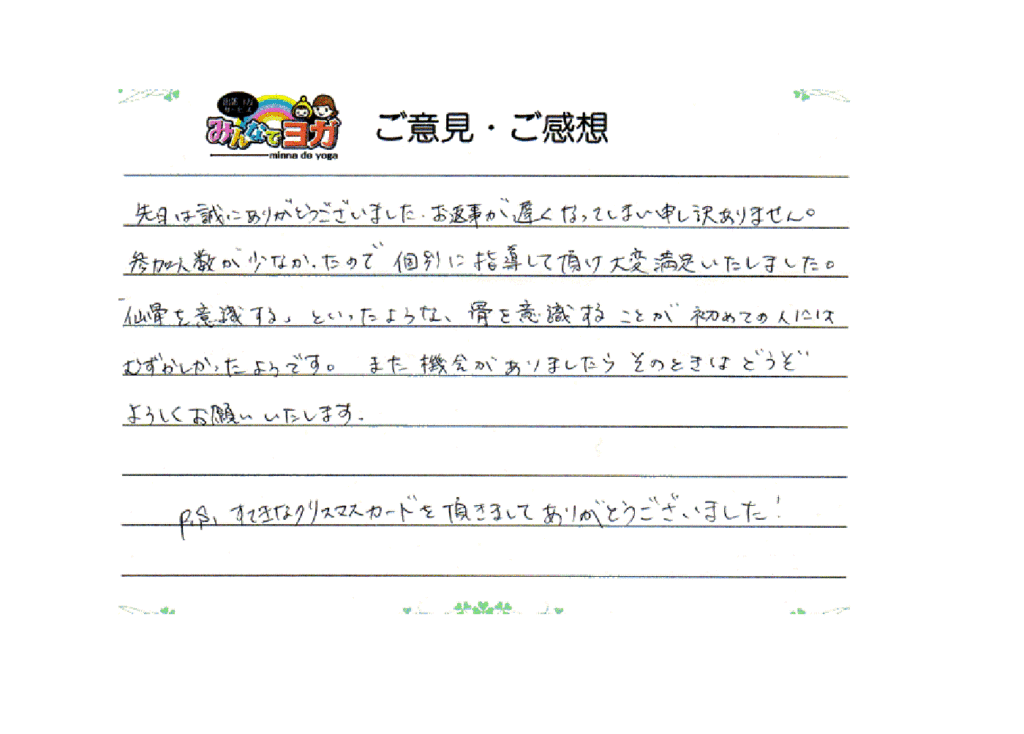 出張ヨガ
サービス
みんなでヨガ
minna de yoga
ご意見・ご感想
先日は誠にありがとうございました。お返事が遅くなってしまい申し訳ありません。
参加人数が少なかったので個別に指導して頂け大変満足いたしました。
「仙骨を意識する」といったような、骨を意識することが初めての人には
むずかしかったようです。また機会がありましたらそのときはどうぞ
よろしくお願いいたします。
P.S. すてきなクリスマスカードを頂きましてありがとうございました!